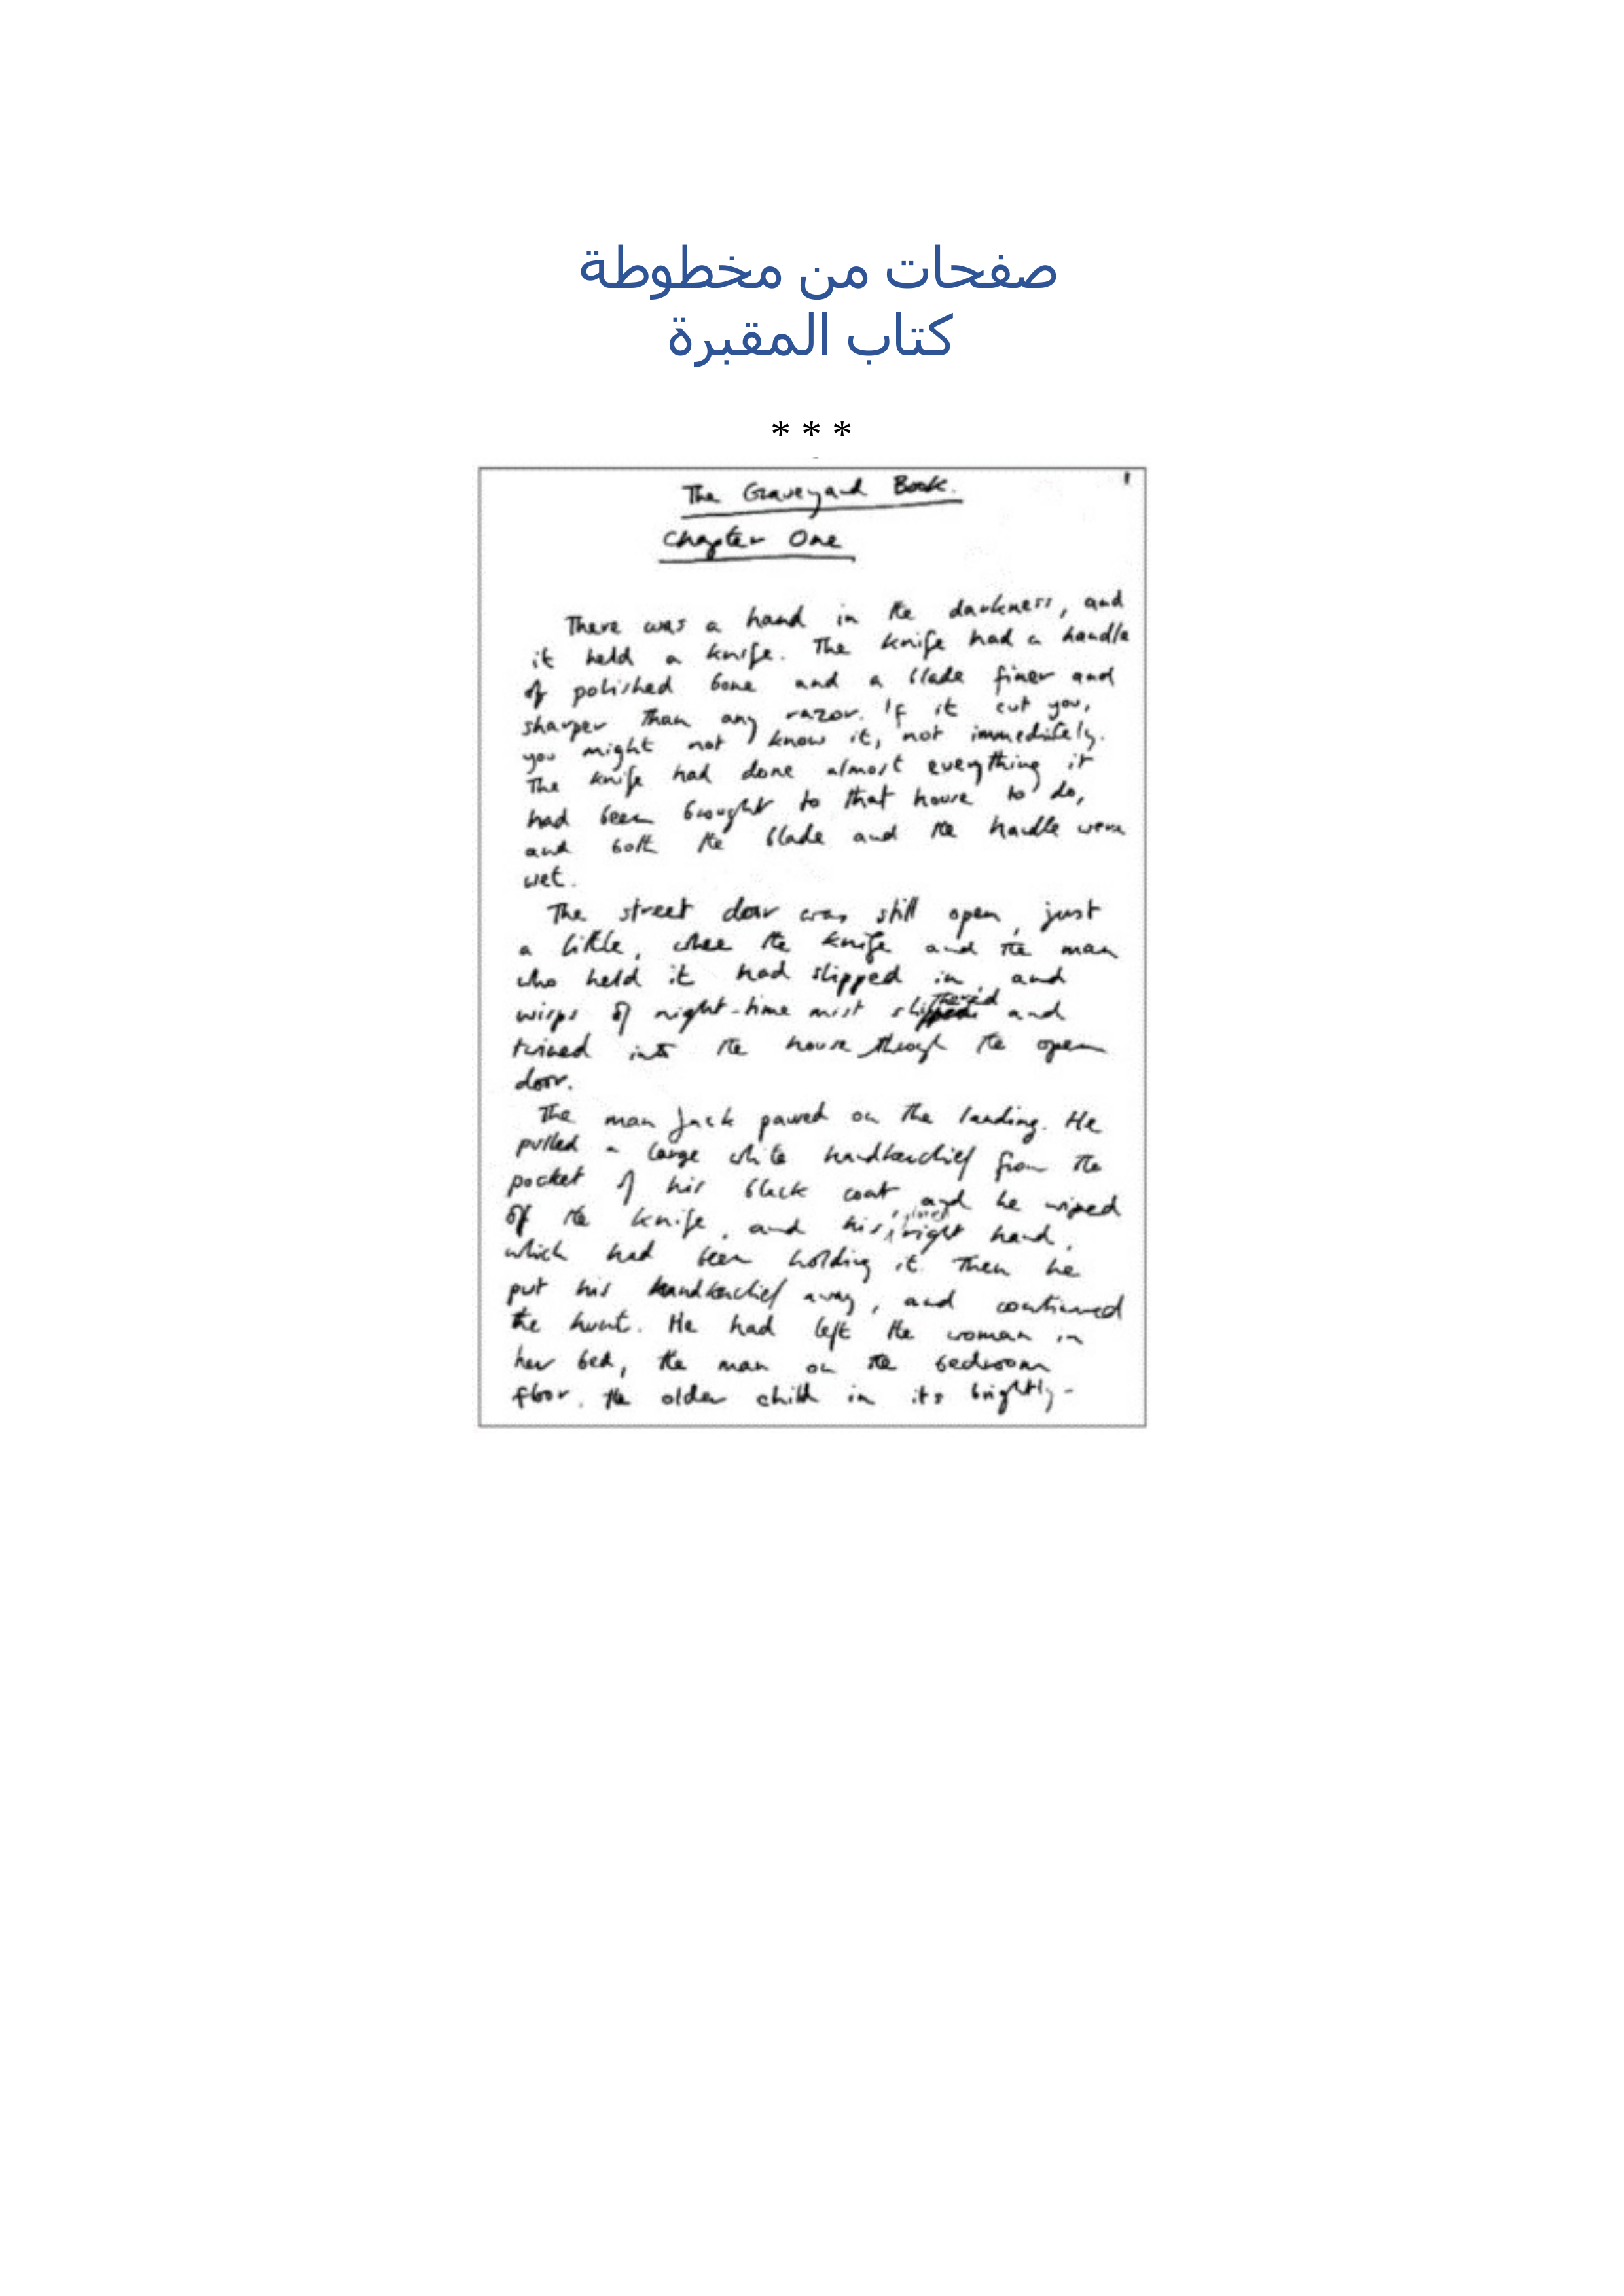 صفحات من مخطوطة
كتاب المقبرة
* * *
1
The Graveyard Book.
Chapter One
There was a hand in the darkness, and
it held a knife. The knife had a handle
of polished bone and a blade finer and
sharper than any razor. If it cut you,
you might not know it, not immediately.
The knife had done almost everything it
had been brought to that house to do,
and both the blade and the handle were
wet.
The street door was still open, just
a little, where the knife and the man
who held it had slipped in, and
wisps of night-time mist slithered and
twined into the house through the open
door.
The man Jack paused on the landing. He
pulled a large white handkerchief from the
pocket of his black coat and he wiped
off the knife, and his gloved right hand,
which had been holding it. Then he
put his handkerchief away, and continued
the hunt. He had left the woman in
her bed, the man on the bedroom
floor, the older child in its brightly-